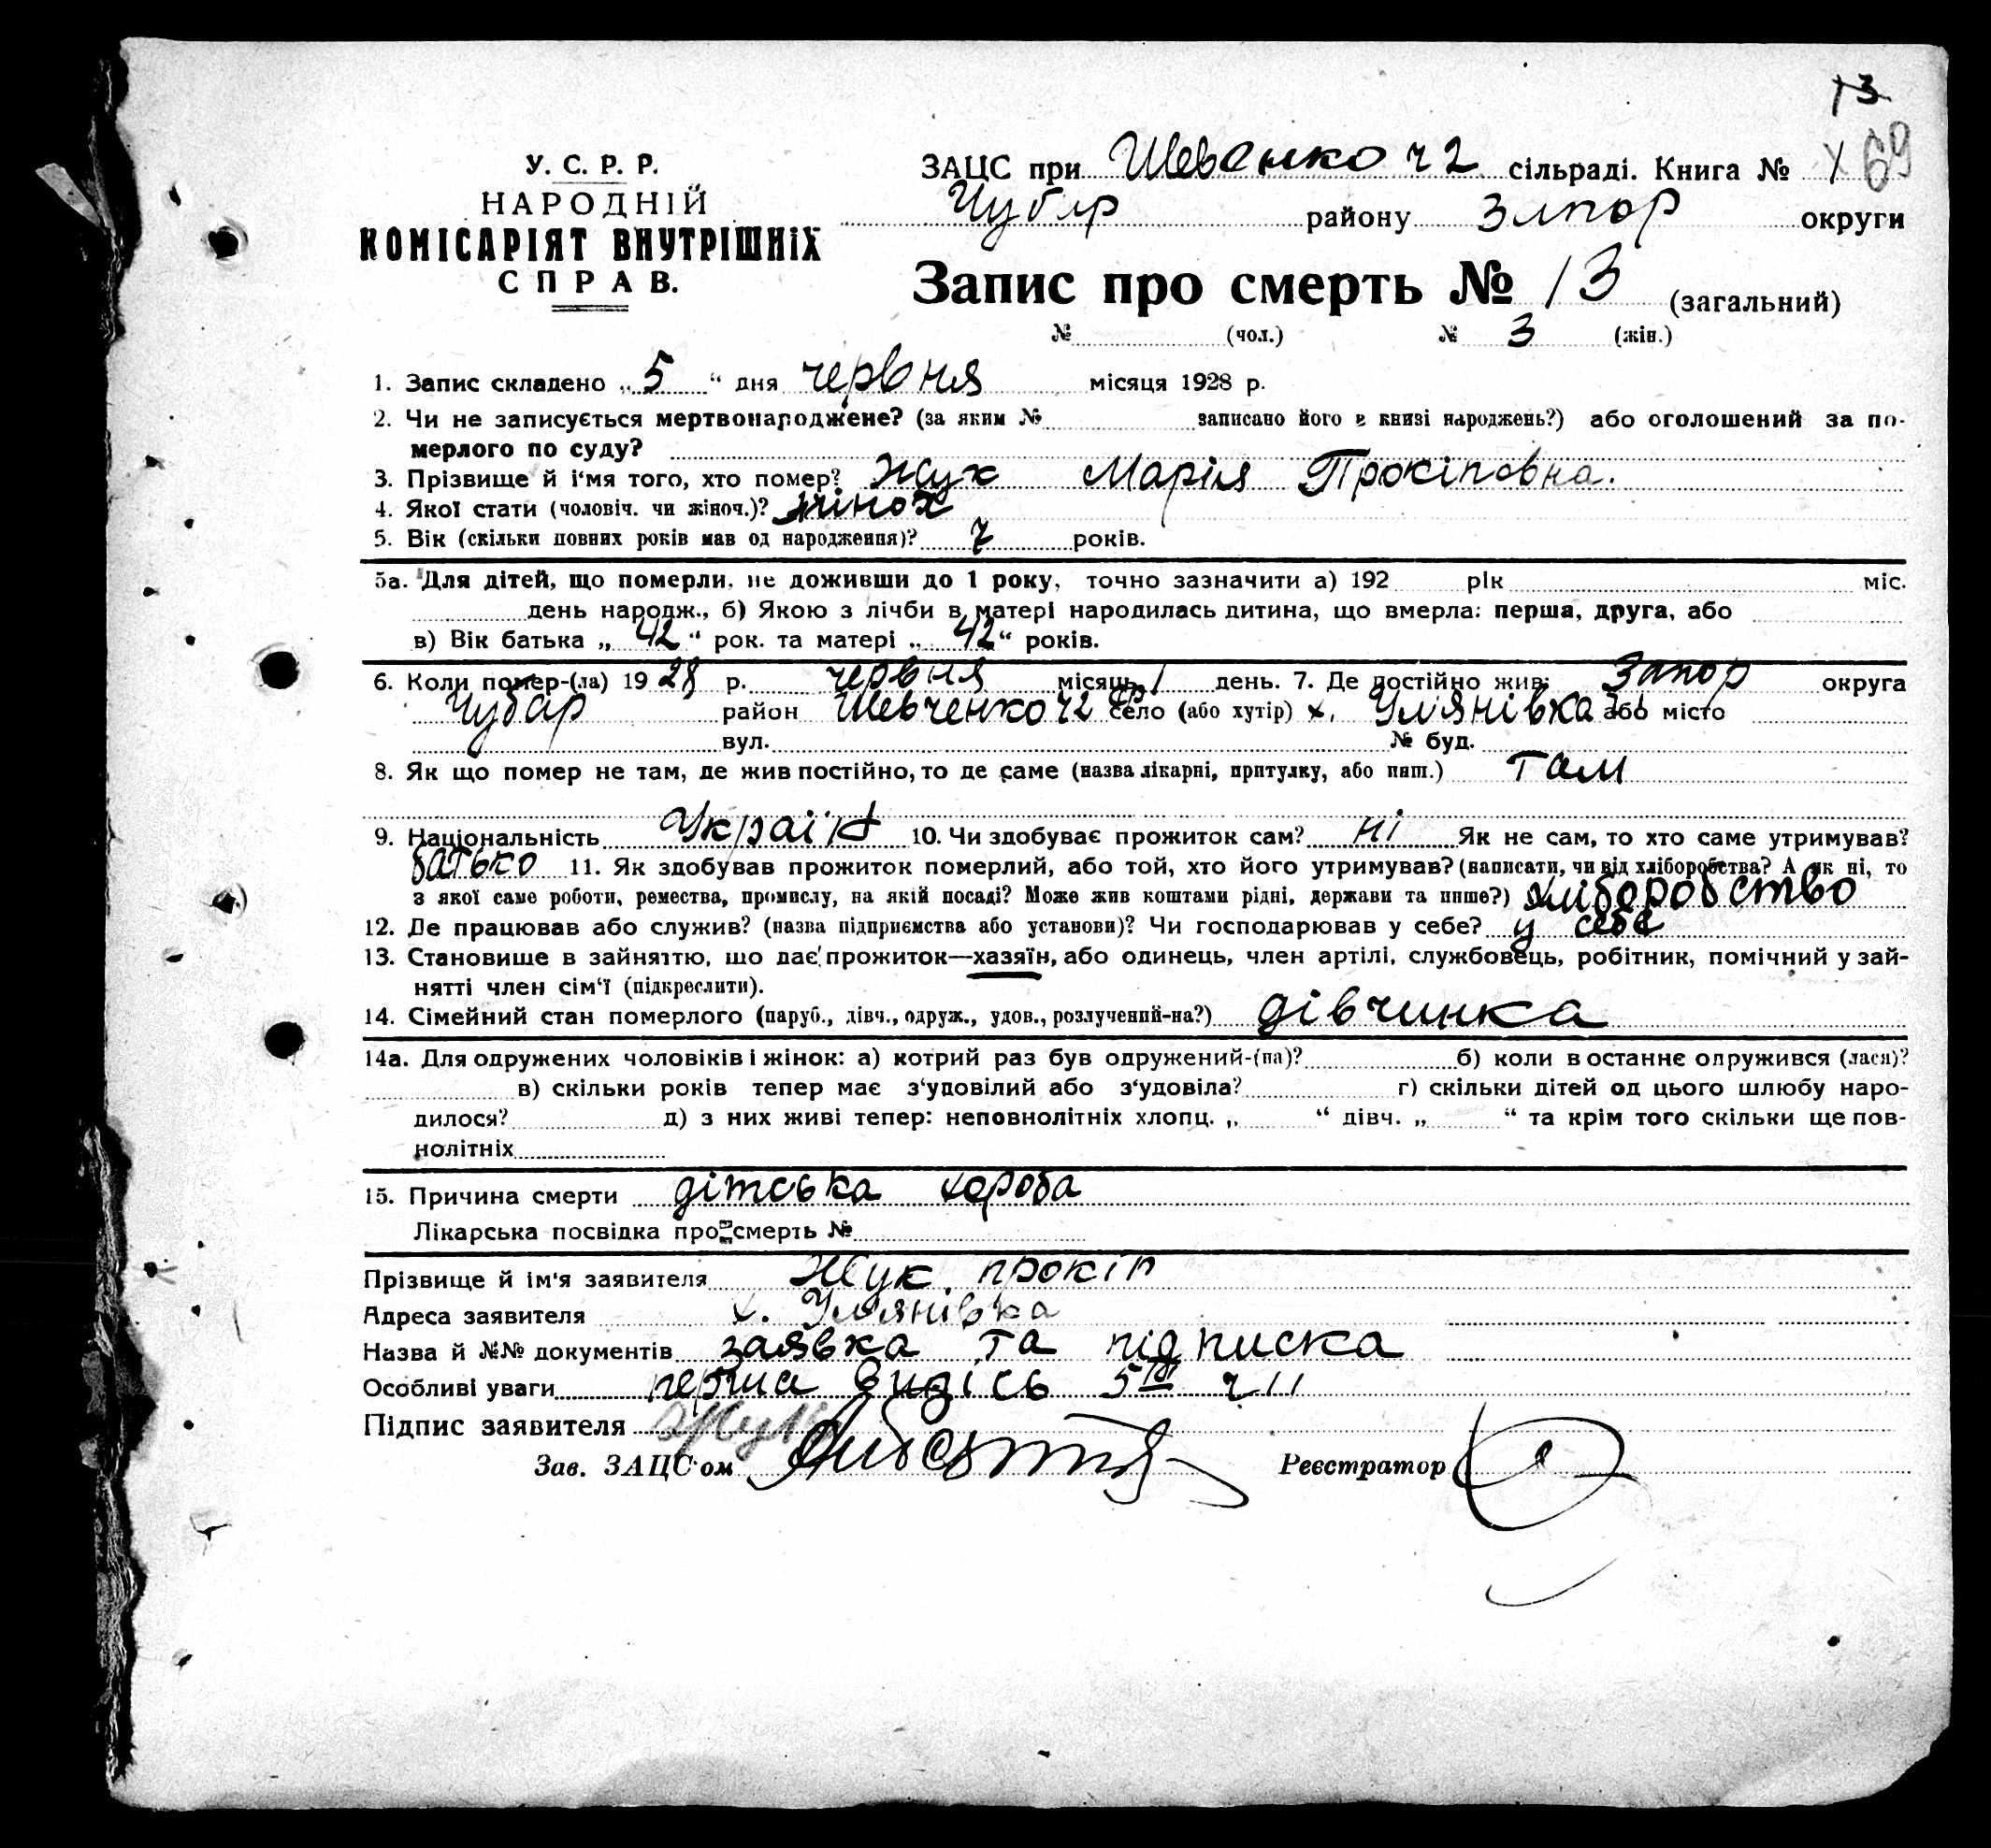 13
У. С. Р. Р.
НАРОДНІЙ
КОМІСАРІЯТ ВНУТРІШНІХ
СПРАВ.
ЗАЦС при Шевенко ч 2 сільраді. Книга № 69
Чубар району Запор округи
Запис про смерть № 13 (загальний)
№ (чол.) № 3 (жін.)
1. Запис складено „ 5 “ дня червня місяця 1928 р.
2. Чи не записується мертвонароджене? (за яким № записано його в книзі народжень?) або оголошений за по-
мерлого по суду?
3. Прізвище й і‘мя того, хто помер? Жук Марія Прокіповна.
4. Якої стати (чоловіч. чи жіноч.)? жіноч
5. Вік (скільки повних років мав од народження)? 7 років.
5а. Для дітей, що померли, не доживши до 1 року, точно зазначити а) 192 рік міс.
день народж., б) Якою з лічби в матері народилась дитина, що вмерла: перша, друга, або
в) Вік батька „ 42 “ рок. та матері „ 42 “ років.
6. Коли помер-(ла) 19 28 р. червня місяць 1 день. 7. Де постійно жив: Запор округа
Чубар район Шевченко ч2 село (або хутір) х. Улянівка або місто
вул. № буд.
8. Як що помер не там, де жив постійно, то де саме (назва лікарні, притулку, або инш.) там
9. Національність Україн 10. Чи здобуває прожиток сам? ні Як не сам, то хто саме утримував?
батько 11. Як здобував прожиток померлий, або той, хто його утримував? (написати, чи від хліборобства? А як ні, то
з якої саме роботи, ремества, промислу, на якій посаді? Може жив коштами рідні, держави та инше?) хліборобство
12. Де працював або служив? (назва підприємства або установи)? Чи господарював у себе? у себе
13. Становище в зайняттю, що дає прожиток—хазяїн, або одинець, член артілі, службовець, робітник, помічний у зай-
нятті член сім‘ї (підкреслити).
14. Сімейний стан померлого (паруб., дівч., одруж., удов., розлучений-на?) дівчинка
14а. Для одружених чоловіків і жінок: а) котрий раз був одружений-(на)? б) коли в останнє одружився (лася)?
в) скільки років тепер має з‘удовілий або з‘удовіла? г) скільки дітей од цього шлюбу наро-
дилося? д) з них живі тепер: неповнолітніх хлопц. „ “ дівч. „ “ та крім того скільки ще пов-
нолітніх
15. Причина смерти дітська хороба
Лікарська посвідка про смерть №
Прізвище й ім‘я заявителя Жук прокіп
Адреса заявителя х. Улянівка
Назва й №№ документів заявка та підписка
Особливі уваги перша
Підпис заявителя Жук
Зав. ЗАЦС‘ом Реєстратор